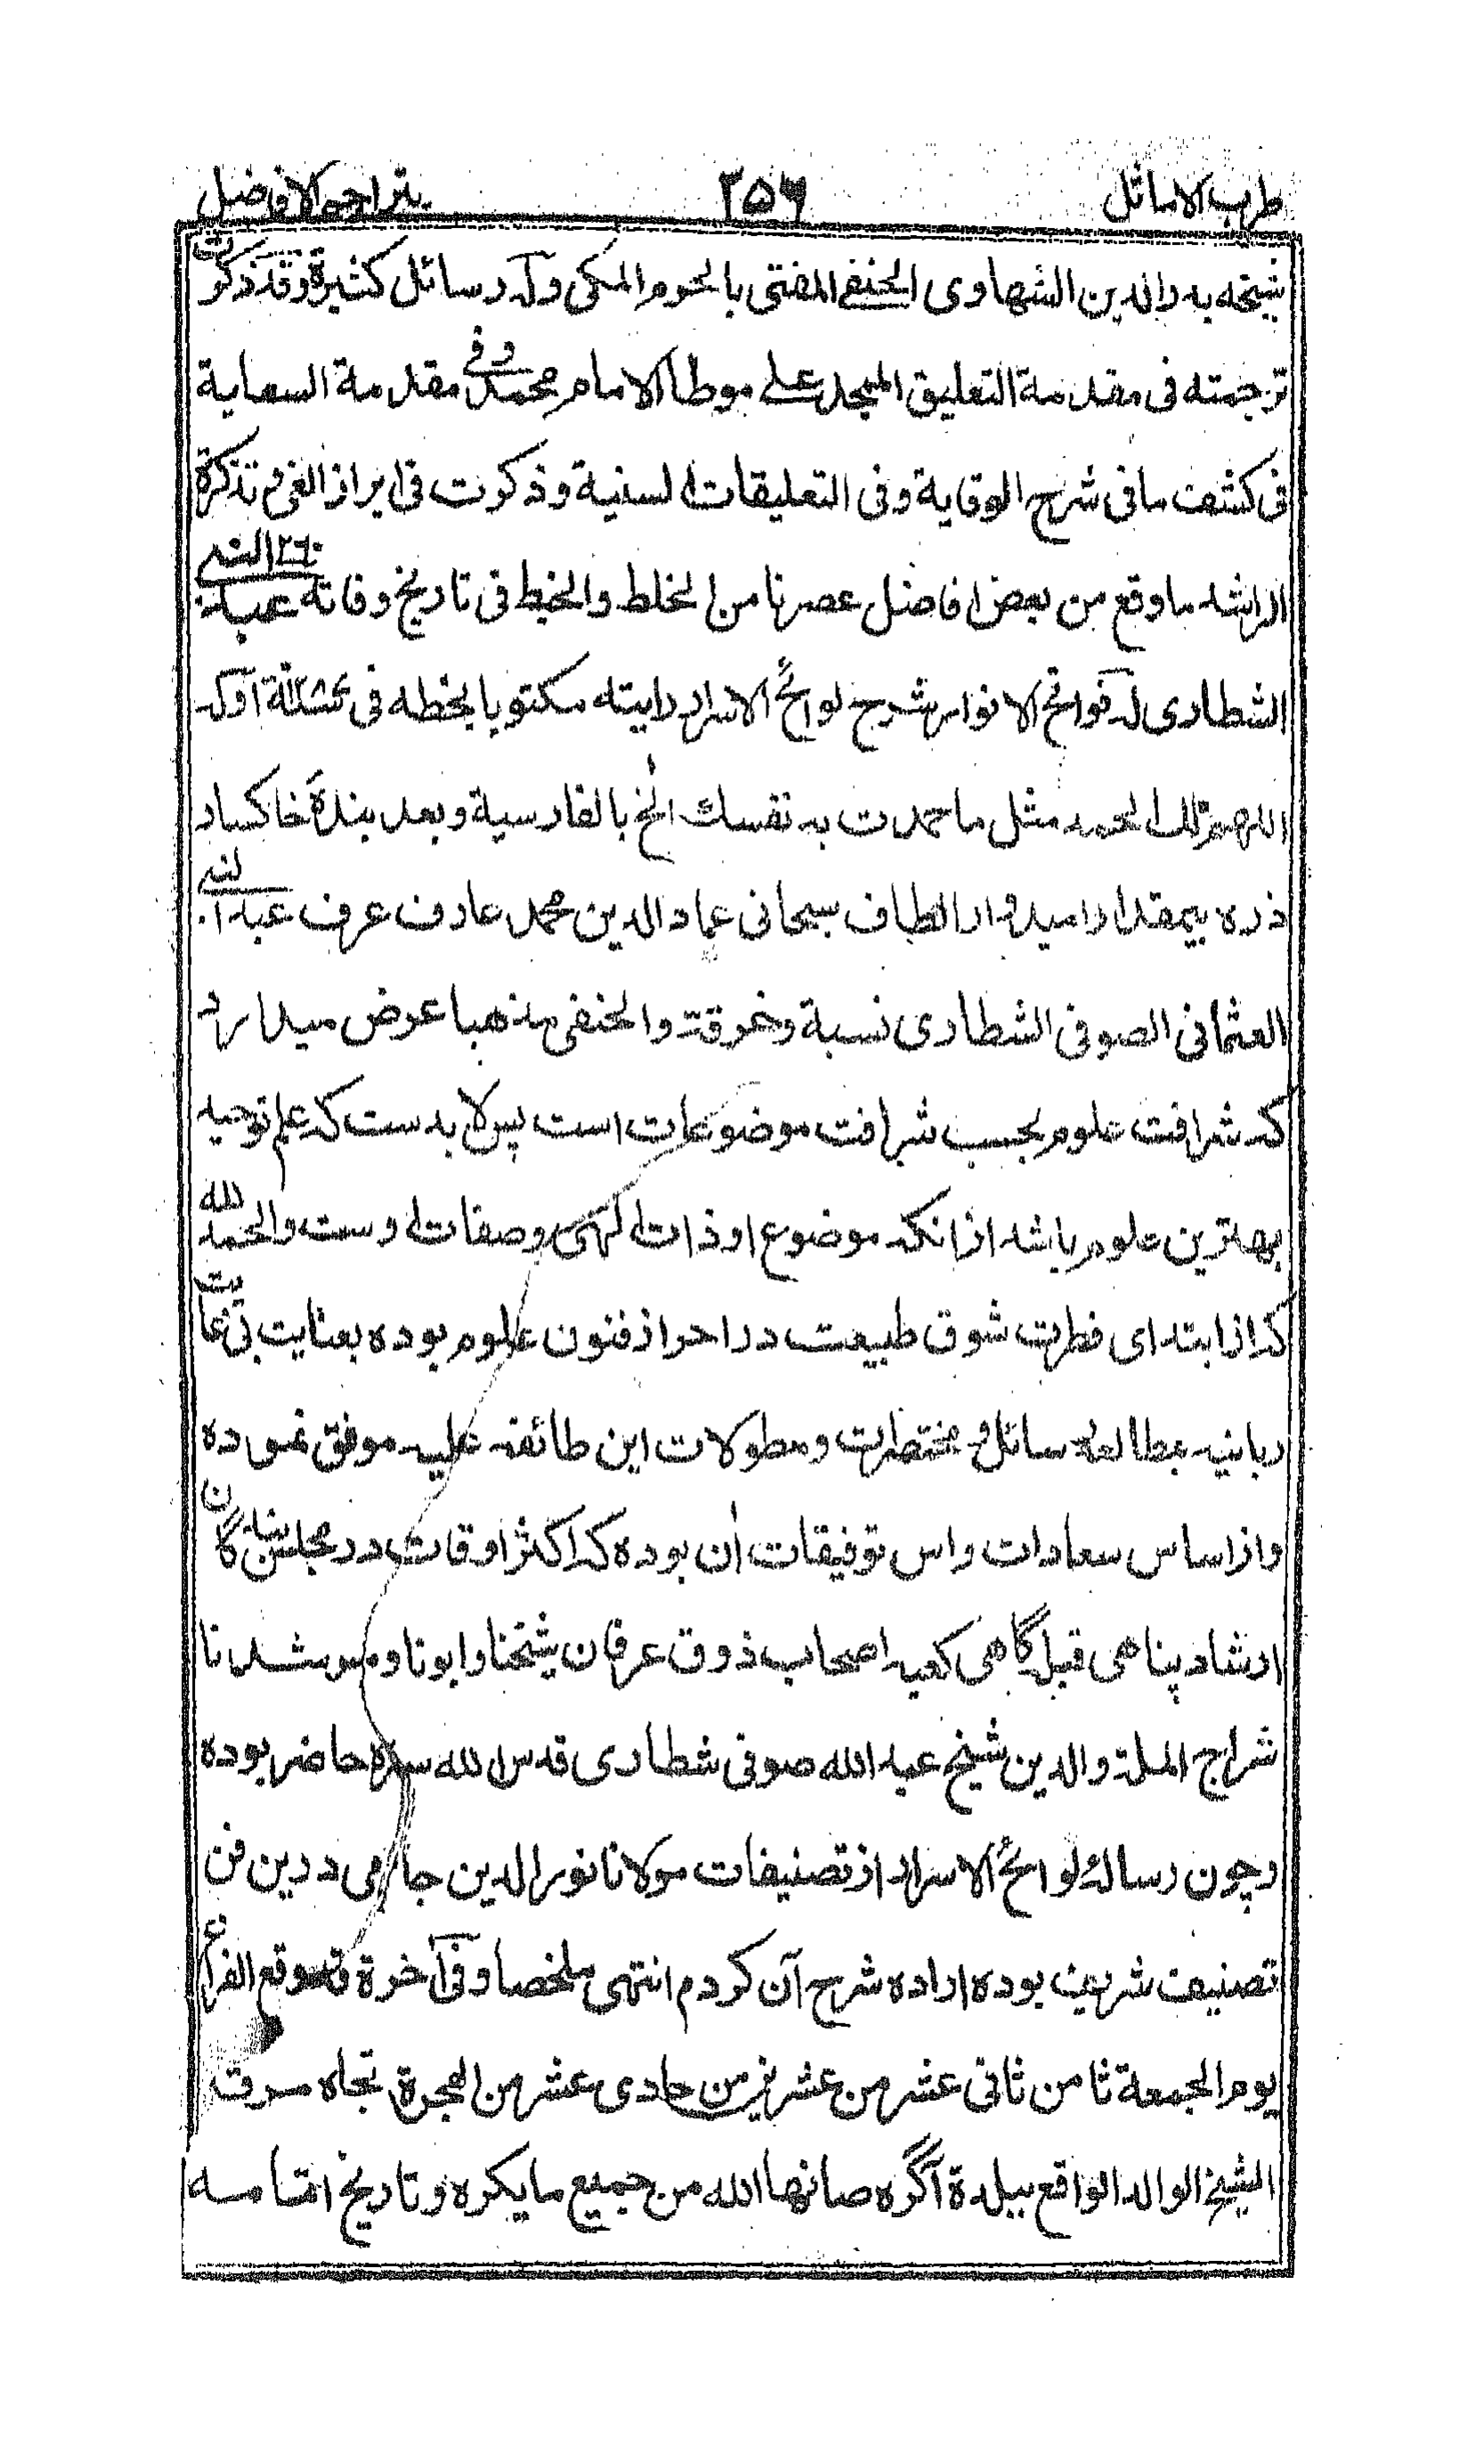 طرب الاماثل ٢٥٦ بتراجم الافاضل
شيخه بدر الدين الشهاوى الحنفى المفتى بالحرم المكى وله رسائل كثيرة وقد ذكرت
ترجمته فى مقدمة التعليق الممجد على موطا الامام محمد وفى مقدمة السعاية
فى كشف ما فى شرح الوقاية وفى التعليقات السنية وذكرت فى ابراز الغى و تذكرة
الراشد ما وقع من بعض افاضل عصرنا من الخلط والخبط فى تاريخ وفاته ٢٦٠ عبد النبى
الشطارى له فواتح الانوار شرح لوائح الاسرار رايته مكتوبا بخطه فى اوله
اللهم لك الحمد مثل ما حمدت به نفسك الخ بالفارسية وبعد بندهٔ خاكسار
ذره بيمقدار اميدوار الطاف سبحانى عماد الدين محمد عارف عرف عبد النبى
العثمانى الصوفى الشطارى نسبة وخرقة والحنفى مذهبا عرض ميدارد
كه شرافت علوم بحسب شرافت موضوعات است پس لا بدست كه علم توحيد
بهترين علوم باشد ازانكه موضوع او ذات الهى وصفات اوست والحمد لله
كه از ابتداى فطرت شوق طبيعت در احراز فنون علوم بوده بعنايت بى غايت
ربانيه بمطالعه رسائل و مختصرات ومطولات اين طائفه عليه موفق نموده
واز اساس سعادات واس توفيقات آن بوده كه اكثر اوقات در مجلس بندگان
ارشاد پناهى قبله گاهى كعبه اصحاب ذوق عرفان شيخنا وابونا ومرشدنا
شراج الملة والدين شيخ عبد الله صوفى شطارى قدس الله سره حاضر بوده
وچون رسالهٔ لوائح الاسرار از تصنيفات مولانا نور الدين جامى درين فن
تصنيف شريف بوده اراده شرح آن كردم انتهى ملخصا وفى آخرة قد وقع الفراغ
يوم الجمعة ثامن ثانى عشر من عشرين من حادى عشر من الهجرة تجاه مرقد
الشيخ الوالد الواقع ببلدة آگره صانها الله من جميع ما يكره وتاريخ اتمامه